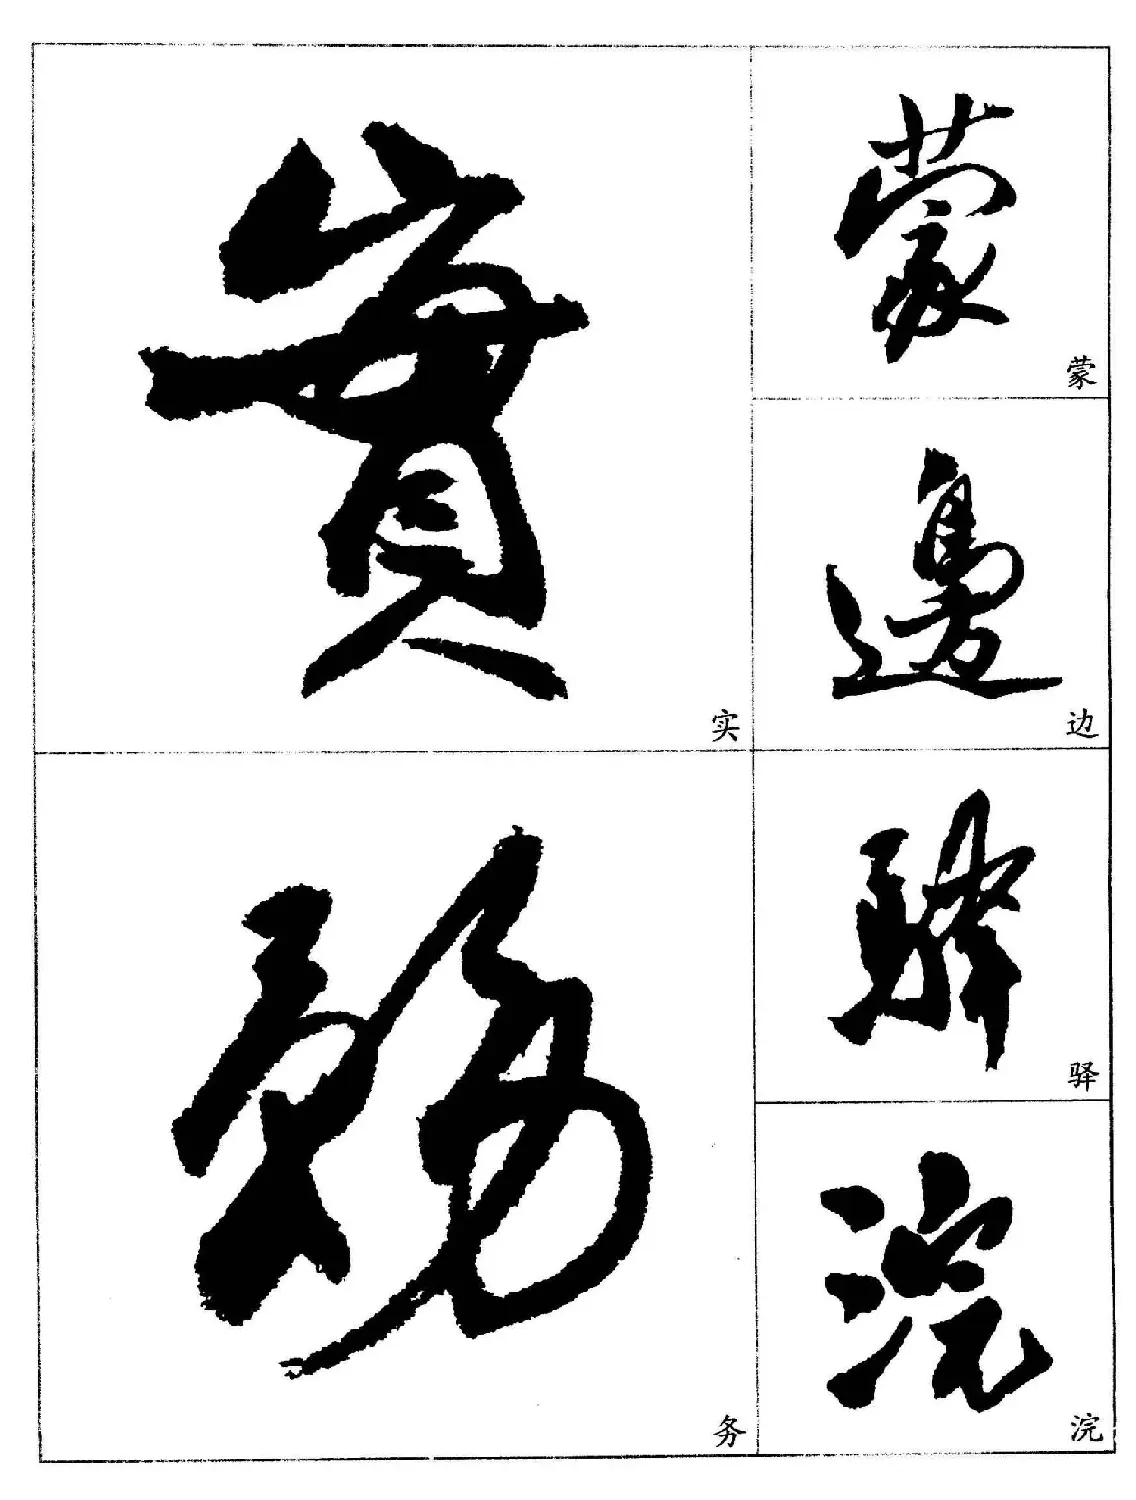 實
实
務
务
蒙
蒙
邊
边
驛
驿
浣
浣